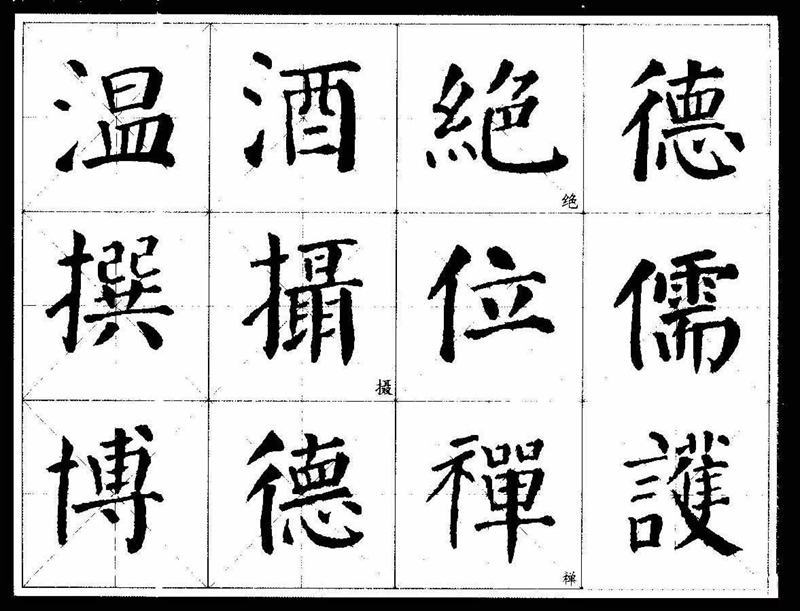 温酒絶德
绝
撰攝位儒
摄
博德禪護
禅